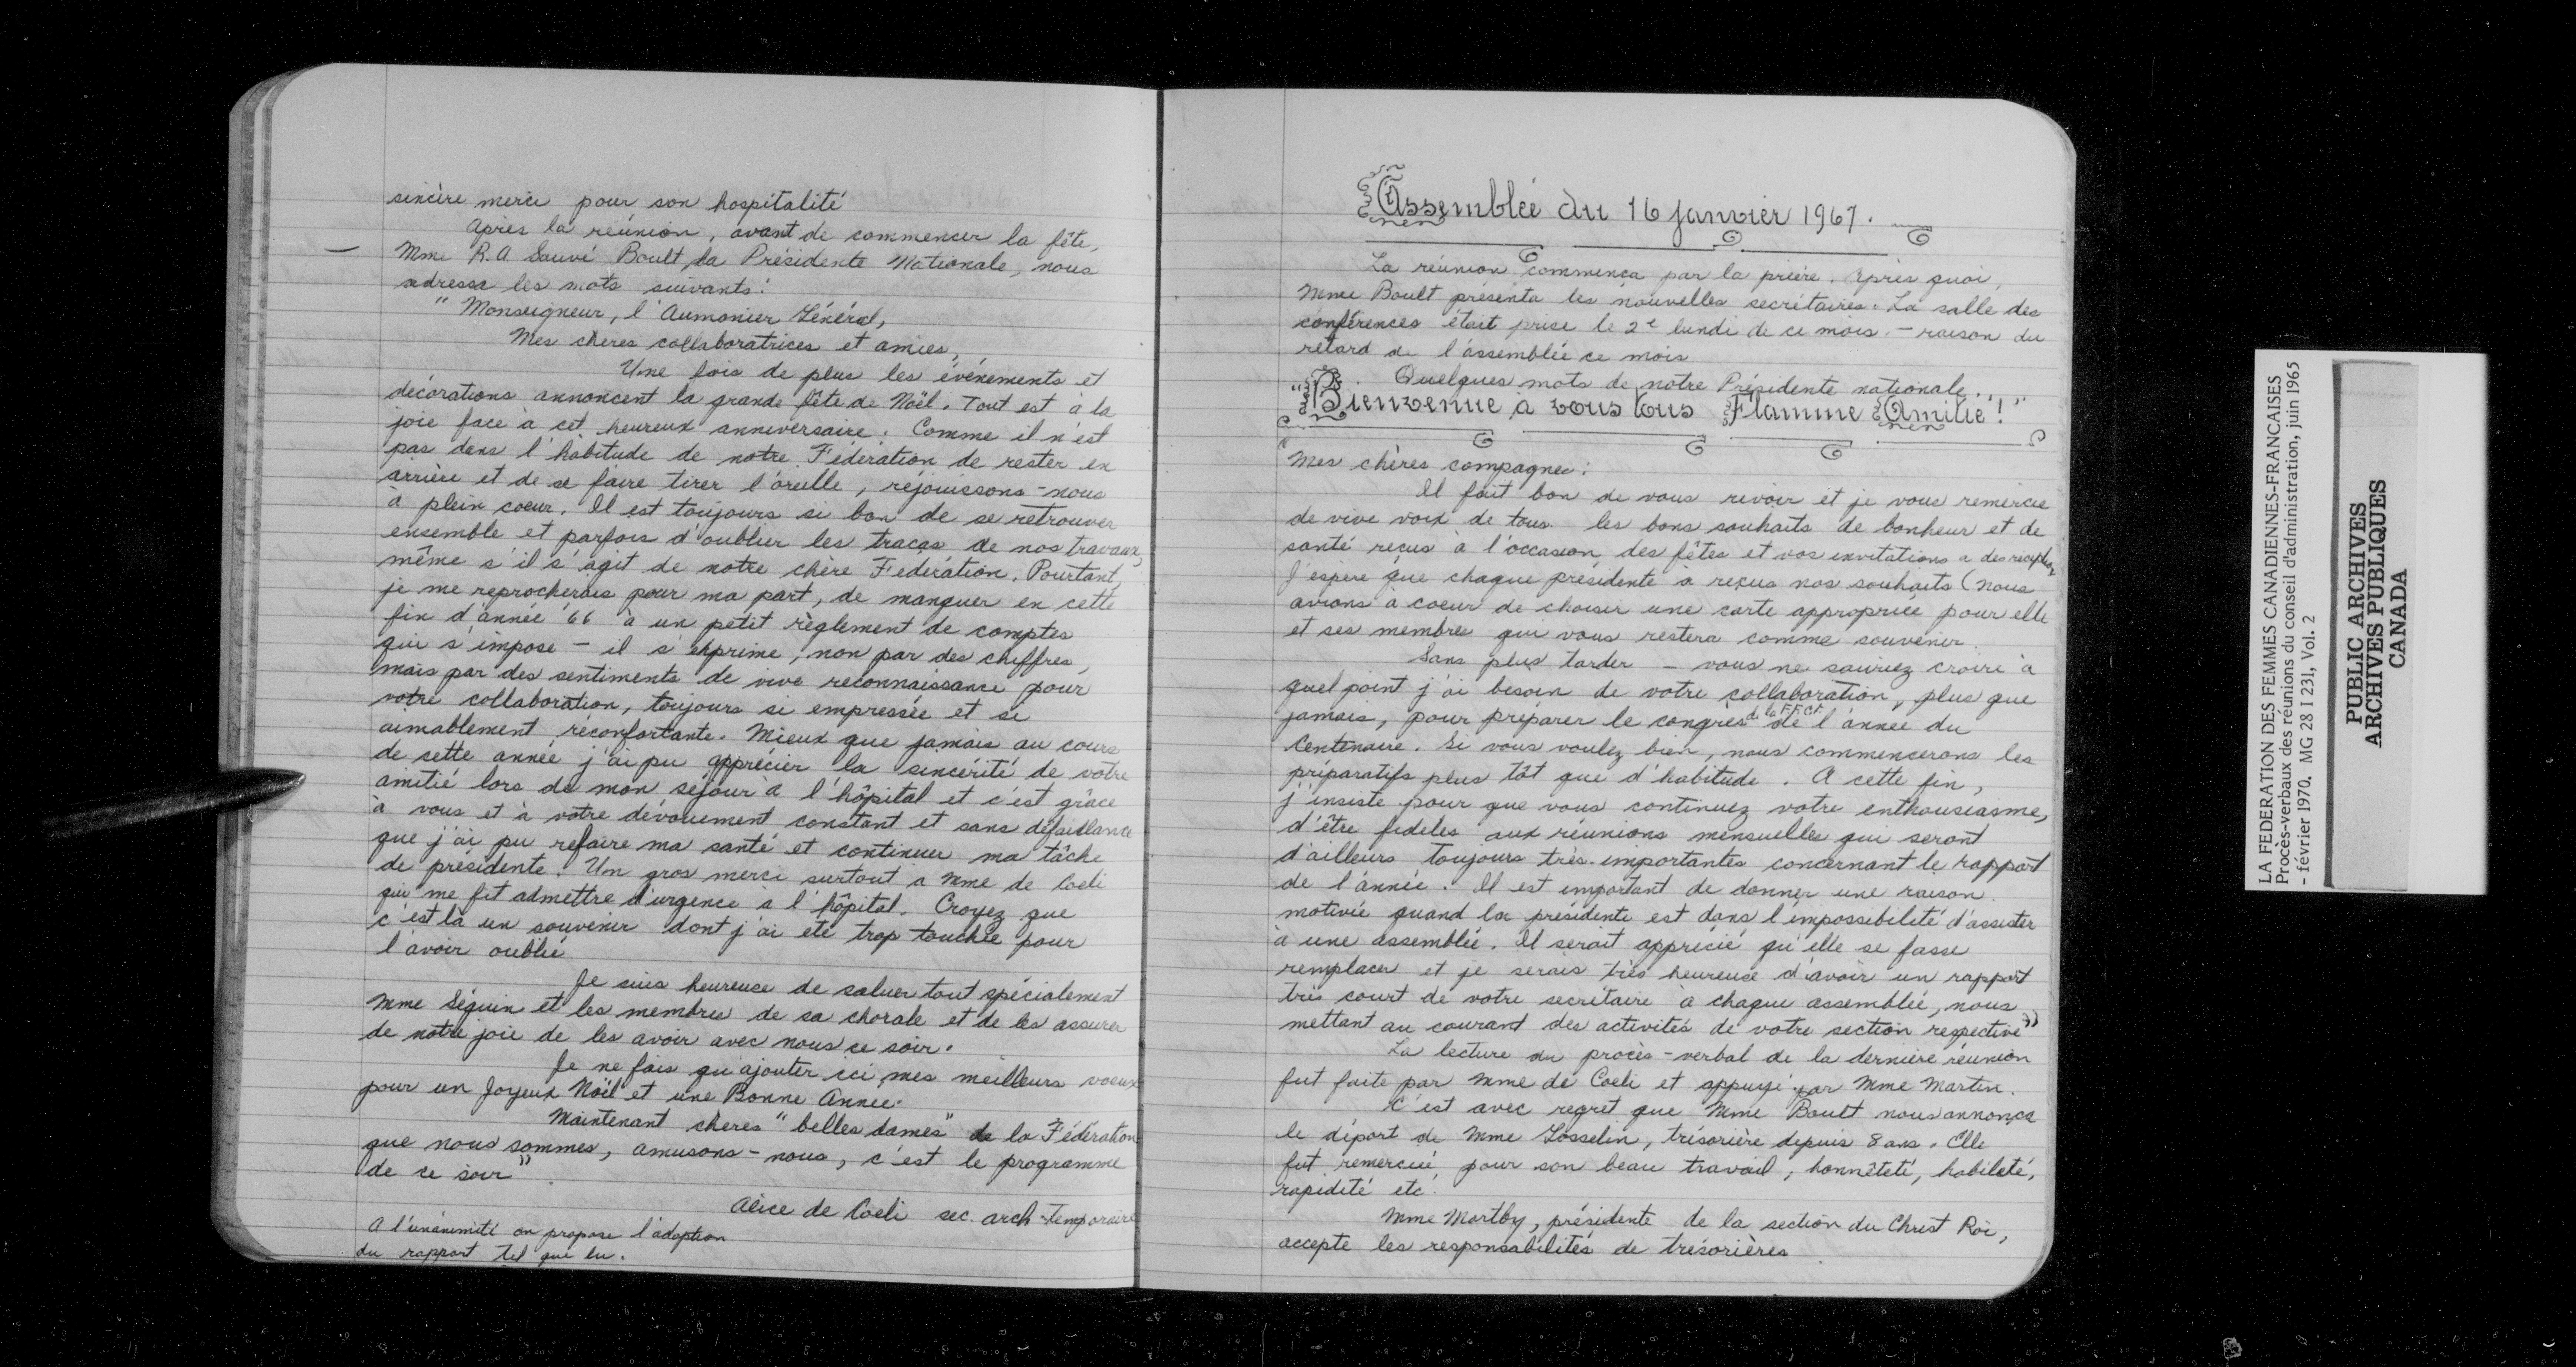 sincère merci pour son hospitalité
Après la réunion, avant de commencer la fête,
Mme R.A Sauvé Boult, la Présidente Nationale, nous
adressa les mots suivants:
" Monseigneur, l'Aumonier Général,
Mes chères collaboratrices et amies,
Une fois de plus les événements et
décorations annoncent la grande fête de Noël. Tout est à la
joie face à cet heureux anniversaire. Comme il n'est
pas dans l'habitude de notre Fédération de rester en
arrière et de se faire tirer l'oreille, réjouissons-nous
à plein coeur. Il est toujours si bon de se retrouver
ensemble et parfois d'oublier les tracas de nos travaux,
même s'il s'agit de notre chère Fédération. Pourtant,
je me reprocherais pour ma part, de manquer en cette
fin d'année '66 à un petit règlement de comptes
qui s'impose - il s'exprime, non par des chiffres,
mais par des sentiments de vive reconnaissance pour
votre collaboration, toujours si empressée et si
aimablement réconfortante. Mieux que jamais au cours
de cette année j'ai pu apprécier la sincérité de votre
amitié lors de mon séjour à l'hôpital et c'est grâce
à vous et à votre dévouement constant et sans défaillance
que j'ai pu refaire ma santé et continuer ma tâche
de présidente. Un gros merci surtout a Mme de Coeli
qui me fit admettre d'urgence à l'hôpital. Croyez que
c'est là un souvenir dont j'ai été trop touchée pour
l'avoir oublié
Je suis heureuse de saluer tout spécialement
Mme Séguin et les membres de sa chorale et de les assurer
de notre joie de les avoir avec nous ce soir.
Je ne fais qu'ajouter ici mes meilleurs voeux
pour un Joyeux Noël et une Bonne Année.
Maintenant chères "belles dames" de la Fédération
que nous sommes, amusons-nous, c'est le programme
de ce soir".
Alice de Coeli sec. arch. temporaire
A l'unanimité on propose l'adoption
du rapport tel que lu.
Assemblée du 16 janvier 1967.
La réunion commença par la prière. Après quoi,
Mme Boult présenta les nouvelles secrétaires. La salle des
conférences était prise le 2e lundi de ce mois - raison du
retard de l'assemblée ce mois
Quelques mots de notre Présidente nationale...
"Bienvenue à vous tous Flamme Amitié!"
"Mes chères compagnes:
Il fait bon de vous revoir et je vous remercie
de vive voix de tous les bons souhaits de bonheur et de
santé reçus à l'occasion des fêtes et vos invitations a des réceptions
J'espère que chaque présidente à reçus nos souhaits (nous
avions à coeur de choisir une carte appropriée pour elle
et ses membres qui vous restera comme souvenir.
Sans plus tarder - vous ne sauriez croire à
quel point j'ai besoin de votre collaboration, plus que
jamais, pour préparer le congrès de la FFCF de l'année du
Centenaire. Si vous voulez bien, nous commencerons les
préparatifs plus tôt que d'habitude. A cette fin,
j'insiste pour que vous continuez votre enthousiasme,
d'être fidèles aux réunions mensuelles qui seront
d'ailleurs toujours très importantes concernant le rapport
de l'année. Il est important de donner une raison
motivée quand la présidente est dans l'impossibilité d'assister
à une assemblée. Il serait apprécié qu'elle se fasse
remplacer et je serais très heureuse d'avoir un rapport
très court de votre secrétaire à chaque assemblée, nous
mettant au courant des activités de votre section respective"
La lecture du procès-verbal de la dernière réunion
fut faite par Mme de Coeli et appuyé par Mme Martin.
C'est avec regret que Mme Boult nous annonça
le départ de Mme Gosselin, trésorière depuis 8 ans. Elle
fut remerciée pour son beau travail, honnêteté, habileté,
rapidité etc.
Mme Martby, présidente de la section du Christ Roi,
accepte les responsabilités de trésorières
LA FEDERATION DES FEMMES CANADIENNES-FRANCAISES
Procès-verbaux des réunions du conseil d'administration, juin 1965
- février 1970. MG 28 I 231, Vol. 2
PUBLIC ARCHIVES
ARCHIVES PUBLIQUES
CANADA